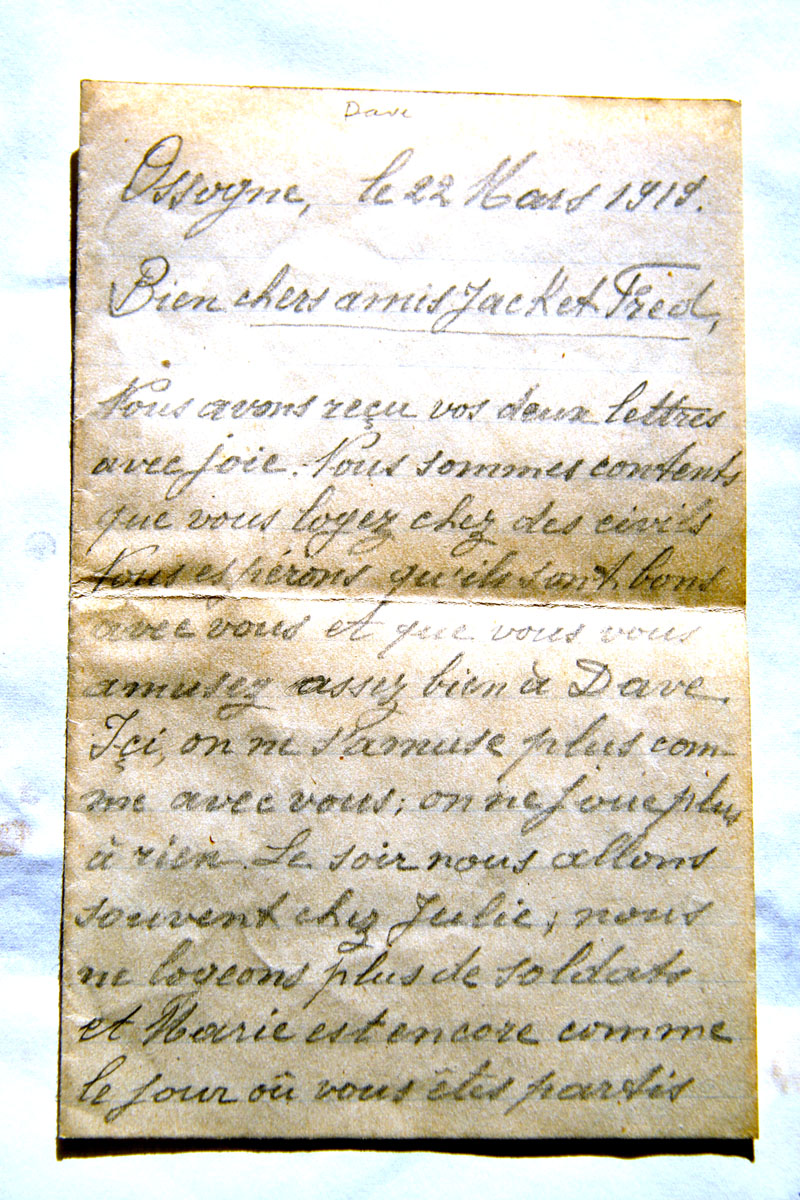 Dave
Ossogne, le 22 Mars 1919.
Bien chers amis Jack et Fred,
Nous avons reçu vos deux lettres
avec joie. Nous sommes contents
que vous logez chez des civils
Nous espérons qu'ils sont bons
avec vous et que vous vous
amusez assez bien à Dave.
Içi, on ne s'amuse plus com-
me avec vous; on ne joue plus
à rien. Le soir nous allons
souvent chez Julie; nous
ne logeons plus de soldats
et Marie est encore comme
le jour où vous êtes partis